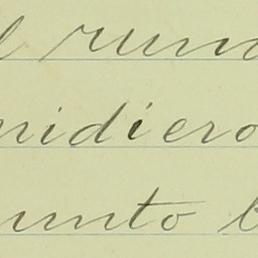 l rund
midiero
unto b